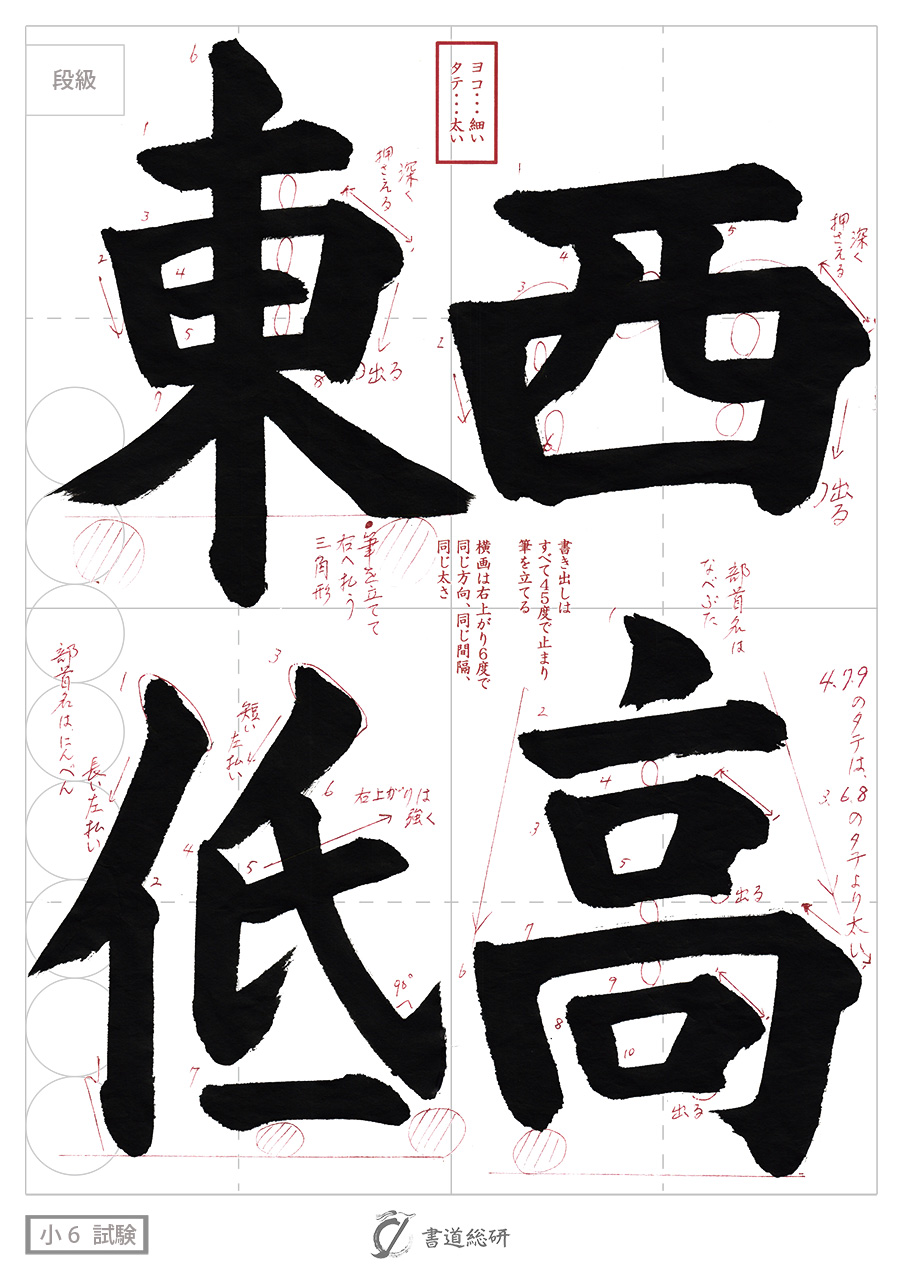 段級
ヨコ・・・細い
タテ・・・太い
西高
東低
深く
押さえる
出る
深く
押さえる
出る
筆を立てて
右へ払う
三角形
書き出しは
すべて45度で止まり
筆を立てる
横画は右上がり6度で
同じ方向、同じ間隔、
同じ太さ
部首名は
なべぶた
4.7.9
のタテは、
3.6.8
のタテより太い
出る
出る
部首名は、にんべん
長い左払い
短い左払い
右上がりは
強く
90°
1
2
3
4
5
6
1
2
3
4
5
6
7
8
1
2
3
4
5
6
7
8
9
10
1
2
3
4
5
6
7
小6 試験
書道総研